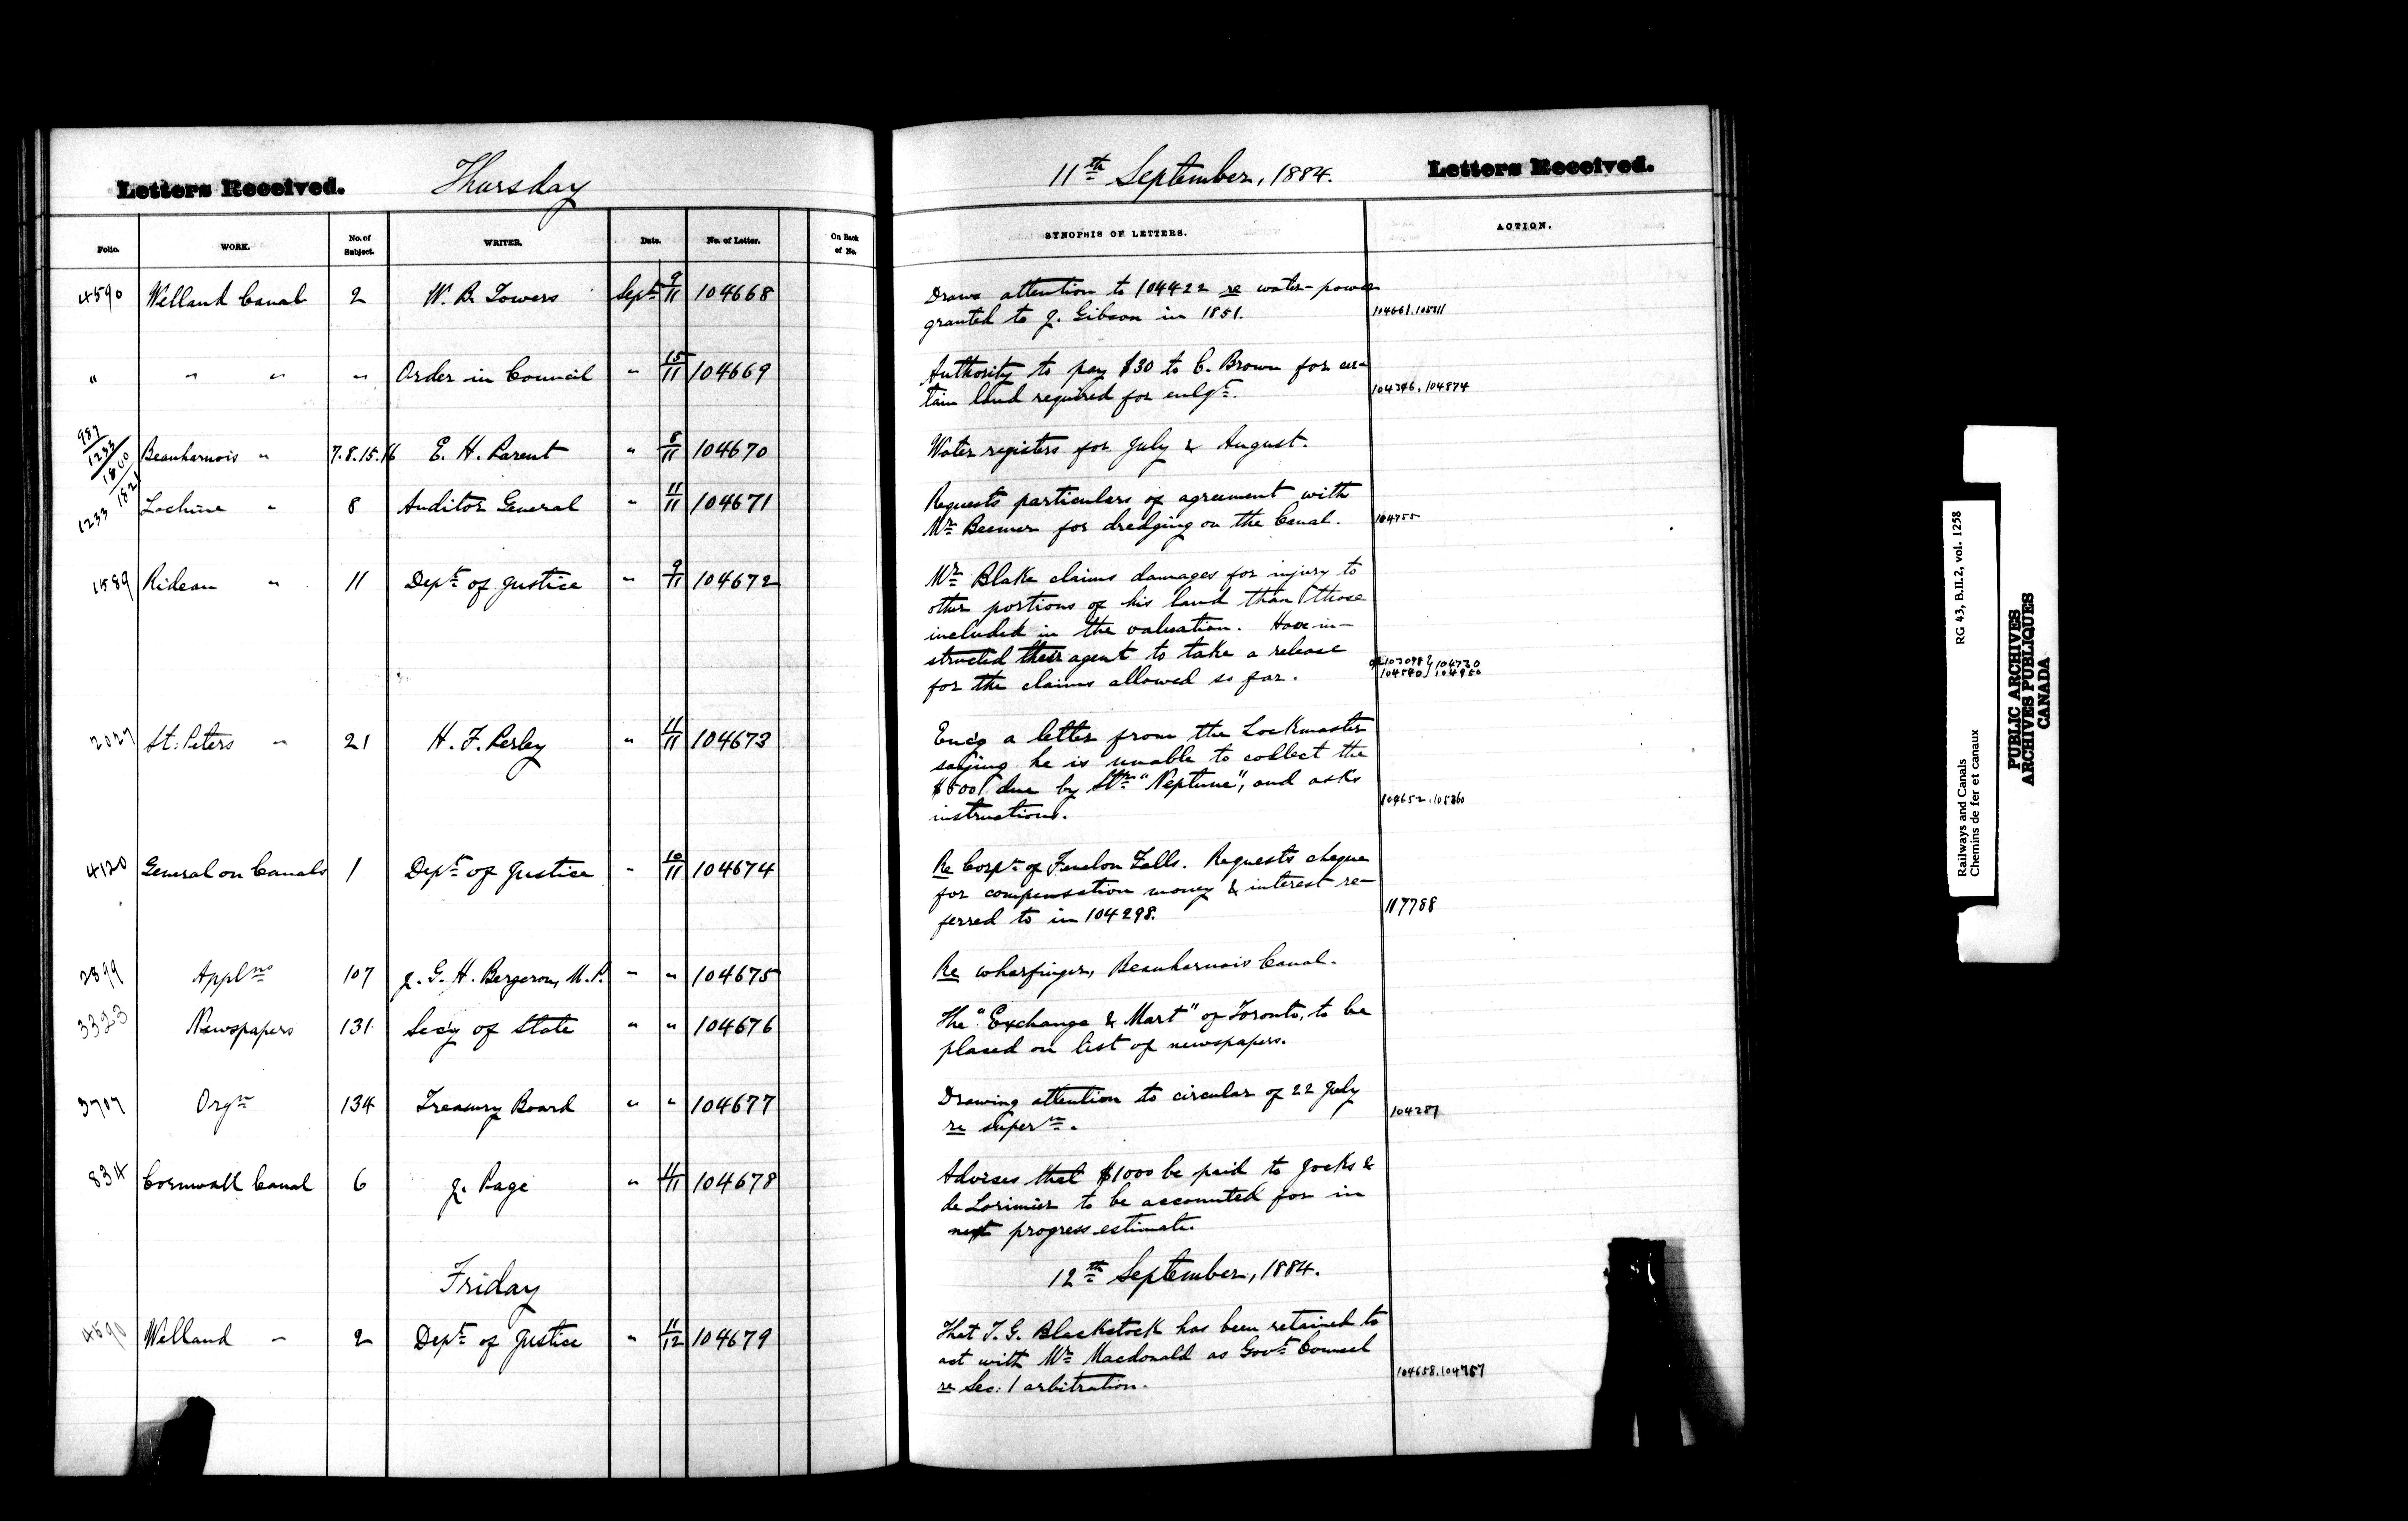 Letters Received. Thursday 11th September, 1884. Letters Received.
Folio. WORK. No. of Subject. WRITER. Date. No. of Letter. On Back of No. SYNOPSIS OF LETTERS. ACTION.
4590 Welland Canal 2 W. B. Towers Sept. 9/11 104668 Draws attention to 104422 re water-power
granted to J. Gibson in 1851. 104661.
" " " " Order in Council " 15/11 104669 Authority to pay $30 to C. Brown for cer-
tain land required for enlgt. 104346. 104874
987 1233 1800 1821 Beauharnois " 7.8.15.16 E. H. Parent " 8/11 104670 Water registers for July & August.
1233 Lachine " 8 Auditor General " 11/11 104671 Requests particulars of agreement with
Mr Beemer for dredging on the Canal. 104755
1589 Rideau " 11 Dept of Justice " 9/11 104672 Mr Blake claims damages for injury to
other portions of his land than those
included in the valuation. Have in-
structed their agent to take a release
for the claims allowed so far. 104730 104540 104950
2027 St. Peters " 21 H. F. Perley " 11/11 104673 Enc'g a letter from the Lockmaster
saying he is unable to collect the
$500 due by Str "Neptune", and asks
instructions. 104652.
4120 General on Canals 1 Dept of Justice " 10/11 104674 Re Corpn of Fenelon Falls. Requests cheque
for compensation money & interest re-
ferred to in 104298. 117788
2899 Applns 107 J. G. H. Bergeron, M.P. " " 104675 Re wharfinger, Beauharnois Canal.
3323 Newspapers 131 Secy of State " " 104676 The "Exchange & Mart" of Toronto, to be
placed on list of newspapers.
3707 Orgn 134 Treasury Board " " 104677 Drawing attention to circular of 22 July
re supern. 104287
834 Cornwall Canal 6 J. Page " 11/11 104678 Advises that $1000 be paid to Jocks &
de Lorimier to be accounted for in
next progress estimate.
Friday 12th September, 1884.
4590 Welland " 2 Dept of Justice " 11/12 104679 That T. G. Blackstock has been retained to
act with Mr Macdonald as Govt Counsel
re Sec: 1 arbitration. 104658.
Railways and Canals RG 43, B.II.2, vol. 1258
Chemins de fer et canaux
PUBLIC ARCHIVES
ARCHIVES PUBLIQUES
CANADA